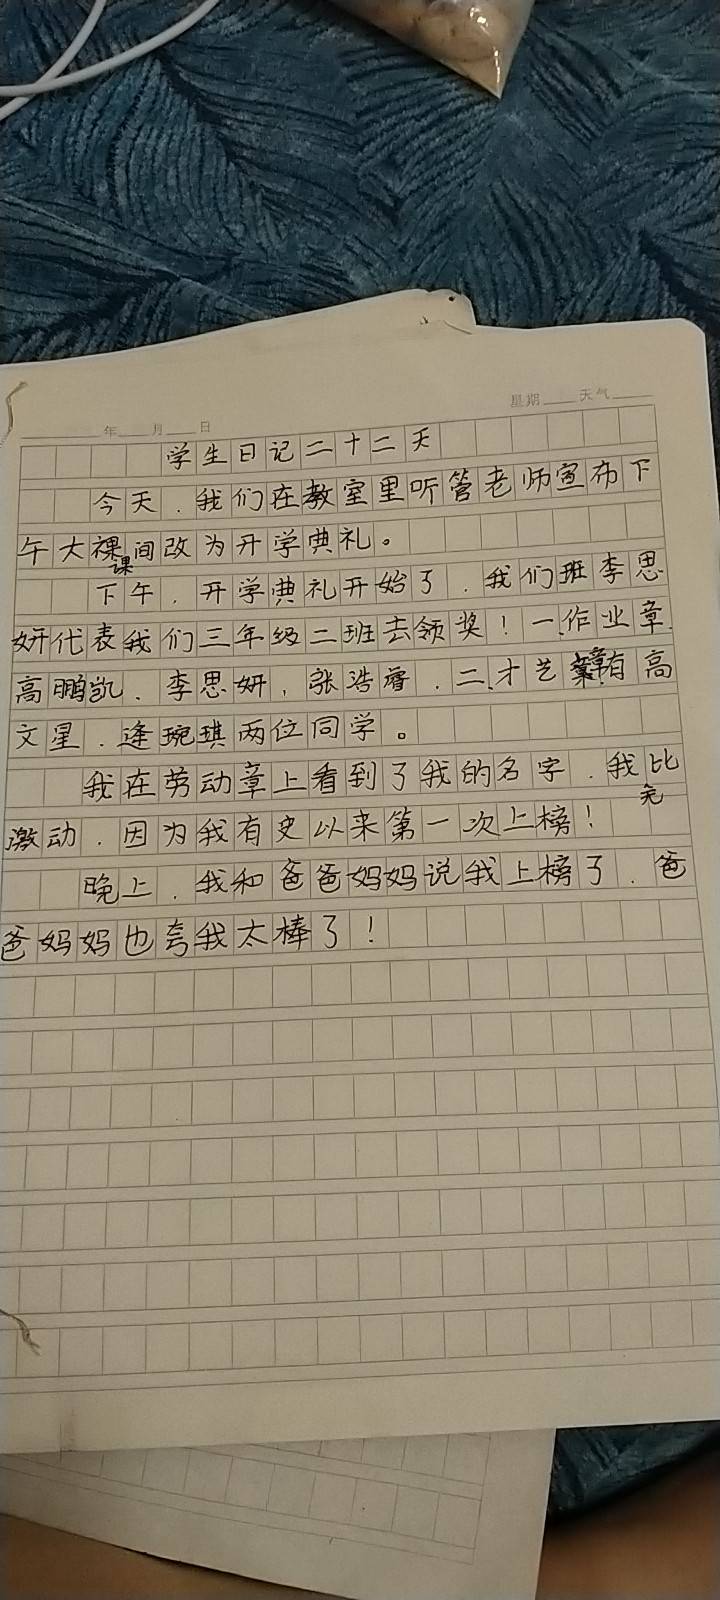 星期 天气
年 月 日
学生日记二十二天
今天.我们在教室里听管老师宣布下
午大课间改为开学典礼。
下午.开学典礼开始了.我们班李思
妍代表我们三年级二班去领奖!一.作业章.
高鹏凯.李思妍,张浩睿.二.才艺章有高
文星.逄琬琪两位同学。
我在劳动章上看到了我的名字.我比
激动.因为我有史以来第一次上榜!无
晚上.我和爸爸妈妈说我上榜了.爸
爸妈妈也夸我太棒了!